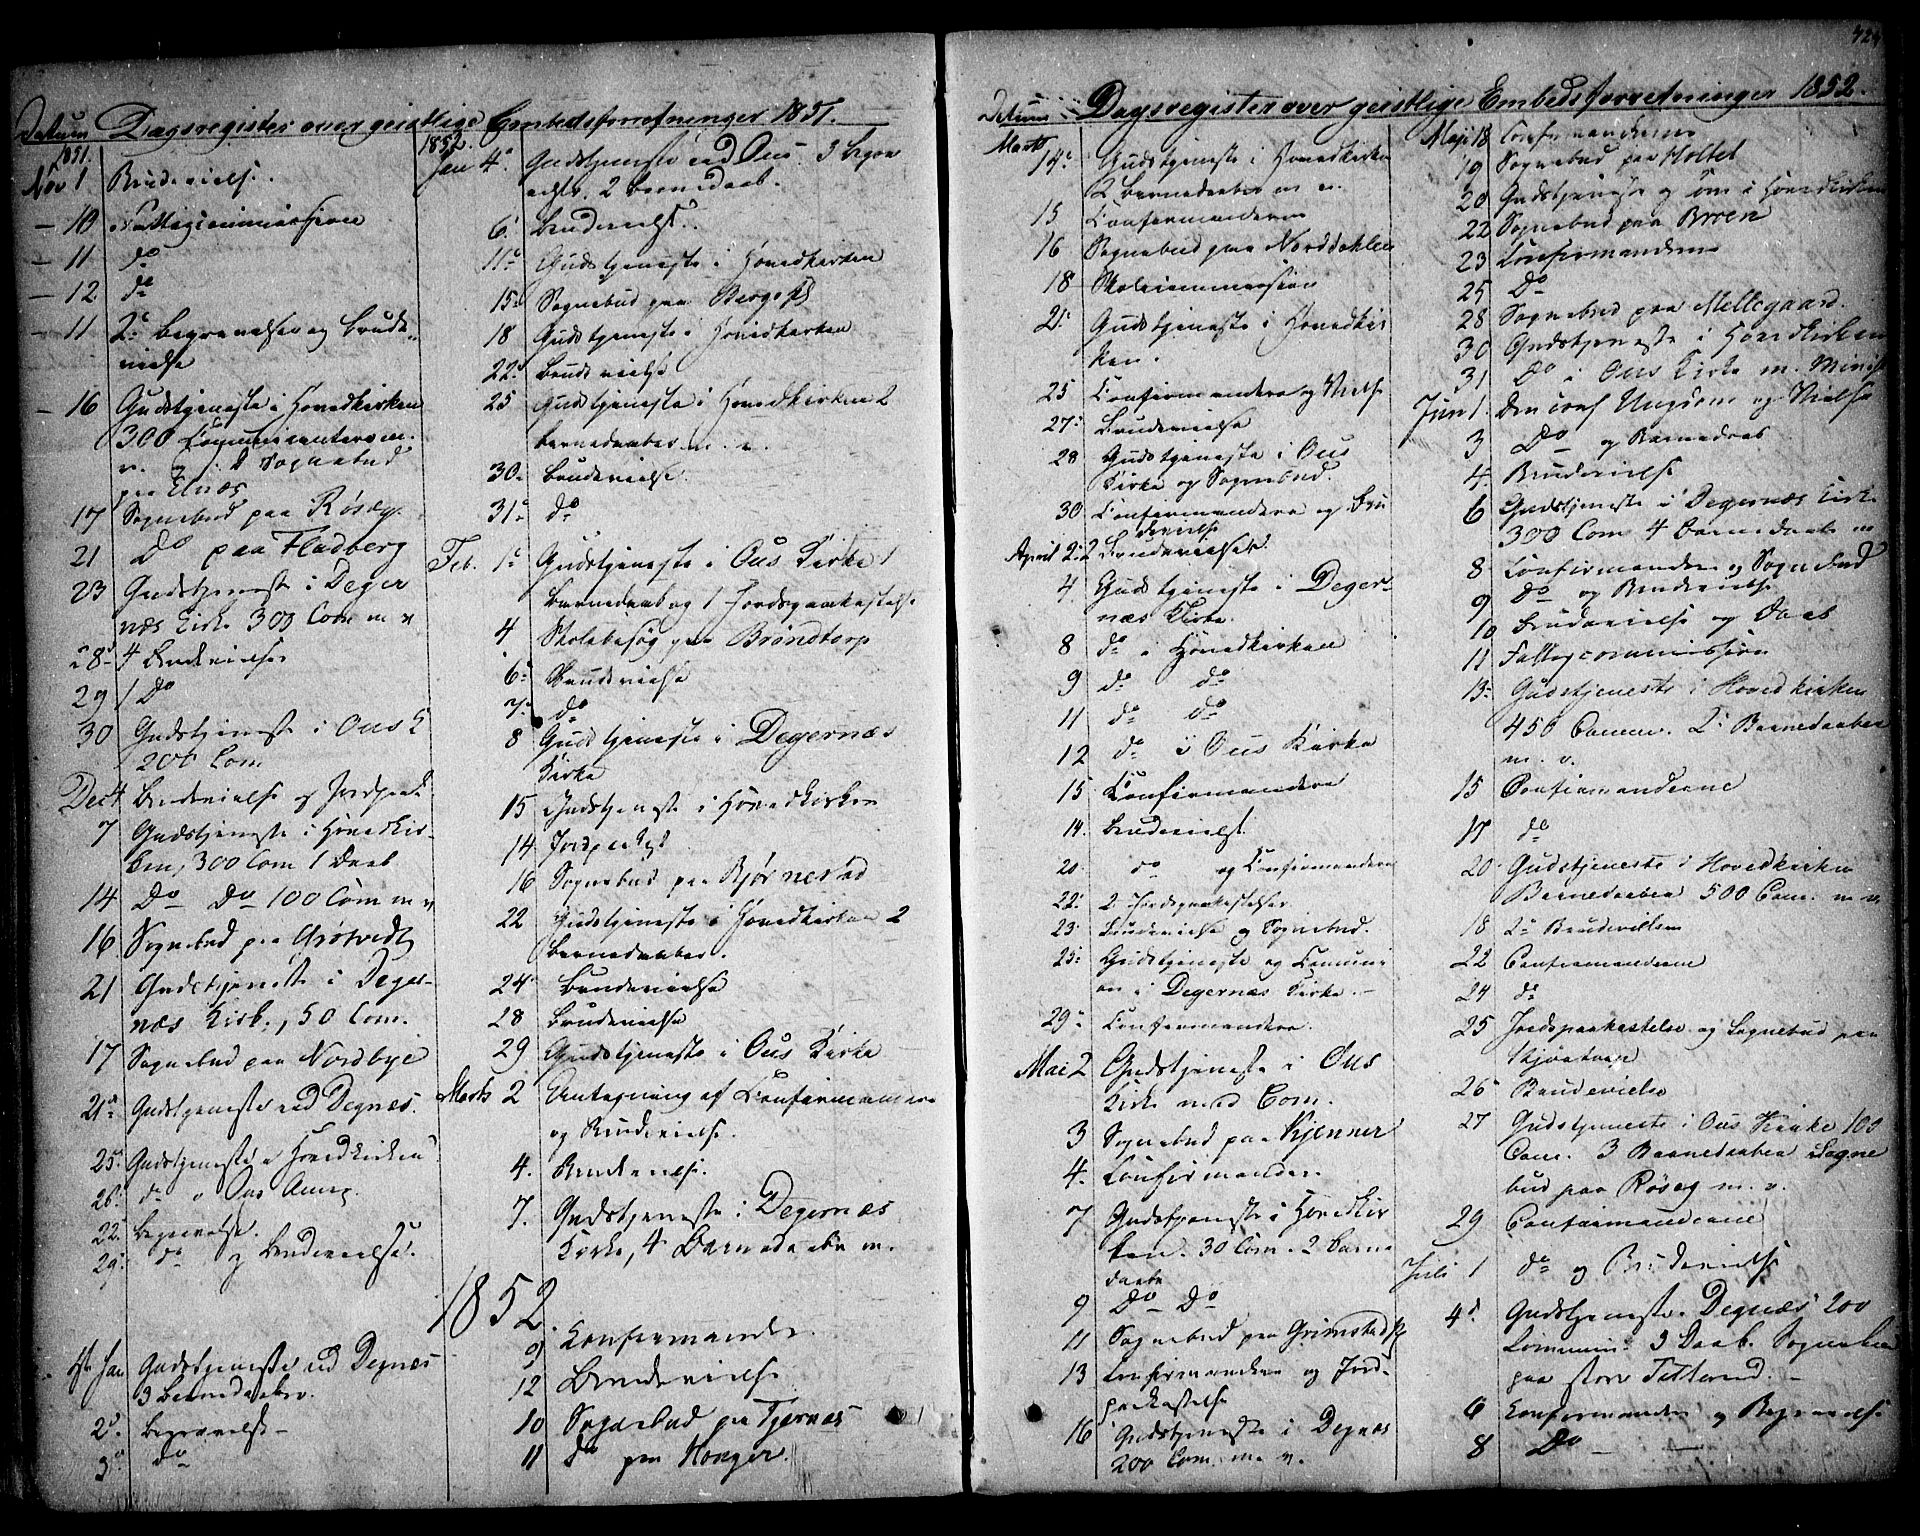 Datum Dagsregister over geistlige Embedsforretninger 1851.
1851.
Nov 1 Brudevielse.
— 10 Fattigcommissionen
— 11 do
— 12 do
— 11 2 Begravelser og Brude
vielse
— 16 Gudstjeneste i Hovedkirken
300 Communicanter m.
v. og Sognebud
paa Elnæs
17 Sognebud paa Røseg
21 Do paa Fladberg
23 Gudstjeneste i Deger
næs Kirke 300 Com m v
28 4 Brudevielser
29 1 Do
30 Gudstjeneste i Ous K
200 Com
Dec 4 Brudevielse og Jordpaak
7 Gudstjeneste i Hovedkir-
ken, 300 Com 1 Daab
14 Do Do 100 Com m v
16 Sognebud paa Grøtvedt
21 Gudstjeneste i Deger-
næs Kirk., 50 Com.
17 Sognebud paa Nordbye
21 Gudstjeneste ved Degnæs.
25 Gudstjeneste i Hovedkirken
26 do i Ous
22 Begravelse.
29 do og Brudevielse.
Jan Gudstjeneste ved Degnæs
3 Barnedaaber.
2 Begravelse
3 do
1852.
Jan 4 Gudstjeneste ved Ous. 3 Begra
velser. 2 Barnedaab.
6. Brudevielse.
11 Gudstjeneste i Hovedkirken
15 Sognebud paa
18 Gudstjeneste i Hovedkirken
22 Brudevielse
25 Gudstjeneste i Hovedkirken 2
Barnedaaber m. v.
30 Brudevielse.
31 do
Feb. 1 Gudstjeneste i Ous Kirke 1
Barnedaab og 1 Jordspaakastelse
4 Skolebesøg paa Brøndtorp
6 Brudevielse
7 do
8 Gudstjeneste i Degernæs
Kirke
15 Gudstjeneste i Hovedkirken
14 Jordpaakast
16 Sognebud paa Bjørnerød
22 Gudstjeneste i Hovedkirken 2
Barnedaaber.
24 Brudevielse
28 Brudevielse
29 Gudstjeneste i Ous Kirke
Marts 2 Antagning af Confirmander
og Brudevielse.
4. Brudevielse.
7. Gudstjeneste i Degernæs
Kirke, 4 Barnedaabe m.
1852.
9 Confirmander.
12 Brudevielse
10 Sognebud paa Tjernæs
11 do paa Honger.
Datum Dagsregister over geistlige Embedsforretninger 1852.
Marts
14 Gudstjeneste i Hovedkirken
2 Barnedaaber m v.
15 Confirmanderne
16 Sognebud paa Norddahlen
18 Skolecommission
21 Gudstjeneste i Hovedkir
ken.
25 Confirmandere og Vielse
27 Brudevielse
28 Gudstjeneste i Ous
Kirke og Sognebud.
30 Confirmandere og Bru
devielse
April 2 2 Brudevielser
4 Gudstjeneste i Deger-
næs Kirke.
8 do i Hovedkirken
9 do do
11 do do
12 do i Ous Kirke
15 Confirmandere
14. Brudevielse
20 do og Confirmandere
22 2 Jordspaakastelser
23 Brudevielse og Sognebud.
25 Gudstjeneste og Communi
on i Degernæs Kirke. —
29 Confirmandere.
Mai 2 Gudstjeneste i Ous
Kirke med Com.
3 Sognebud paa Kjenner
4. Confirmander.
7 Gudstjeneste i Hovedkir
ken. 30 Com. 2 Barne
daabe
9 Do — Do
11 Sognebud paa Grimsted
13 Confirmandere og Jord-
paakastelse
16 Gudstjeneste i Degnæs
200 Com. m. v.
Maji 18 Confirmanderne
19 Sognebud paa Holtet
20 Gudstjeneste og Com i Hovedkirken
22 Sognebud paa Breen
23 Confirmandere
25 Do
28 Sognebud paa Mellegaard.
30 Gudstjeneste i Hovedkirken
31 Do i Ous Kirke m. Minist
Juni 1. Den conf Ungdom og Vielse
3 Do og Barnedaab
4. Brudevielse
6 Gudstjeneste i Degernæs Kirk.
300 Com 4 Barnedaabe m
8 Confirmander og Sognebud
9 Do og Brudevielse
10 Brudevielse og Daab
11 Fattigcommission
13 Gudstjeneste i Hovedkirken
450 Comm. 2 Barnedaaber
m. v.
15 Confirmanderne
17 do
20 Gudstjeneste i Hovedkirken
Barnedaaber 500 Com. m v.
18 2 Brudevielsen
22 Confirmanderne
24 do
25 Jordspaakastelse og Sognebud paa
26 Brudevielse
27 Gudstjeneste i Ous Kirke 100
Com. 3 Barnedaaber Sogne
bud paa Røseg m. v.
29 Confirmanderne
Juli 1 do og Brudevielse
4 Gudstjeneste Degnæs 200
Commun. 3 Daab. Sognebud
paa store Tetterud. —
6 Confirmander og Begravelse
8 Do —